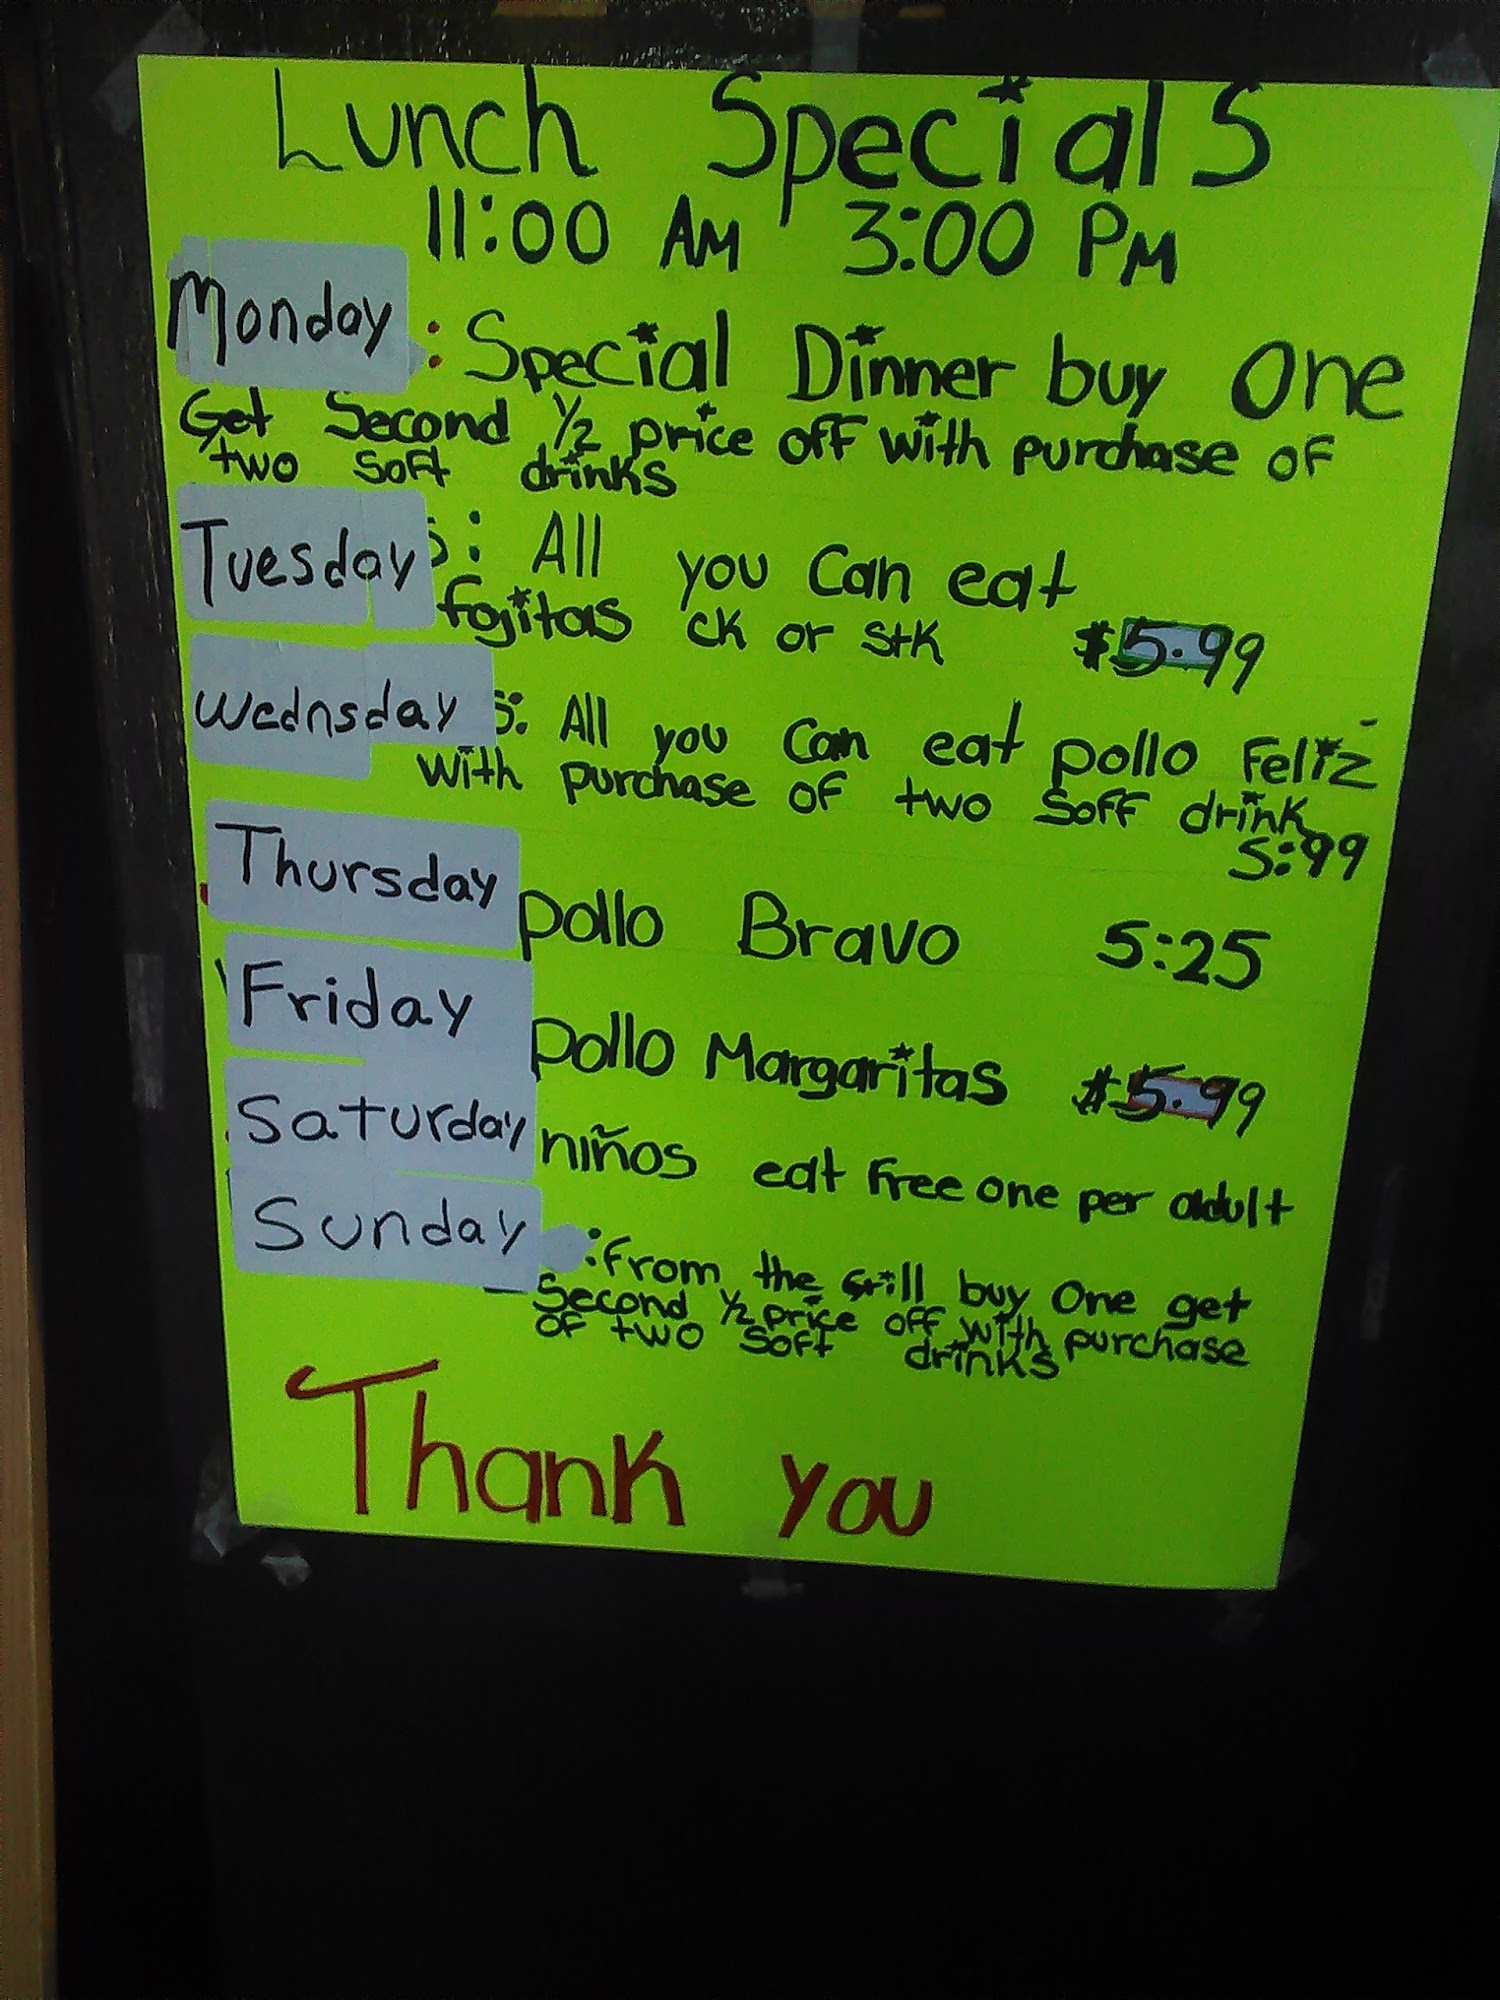 Lunch Specials
11:00 AM 3:00 PM
Monday : Special Dinner buy One
Get Second 1/2 price off with purchase of
two soft drinks
Tuesday s: All you Can eat
fojitas ck or stk $5.99
Wednsday s: All you Can eat pollo Feliz
with purchase of two soff drink
5:99
Thursday pollo Bravo 5:25
Friday pollo Margaritas $5.99
Saturday niños eat Free one per adult
Sunday :From the grill buy One get
Second 1/2 price off with purchase
of two soft drinks
Thank you